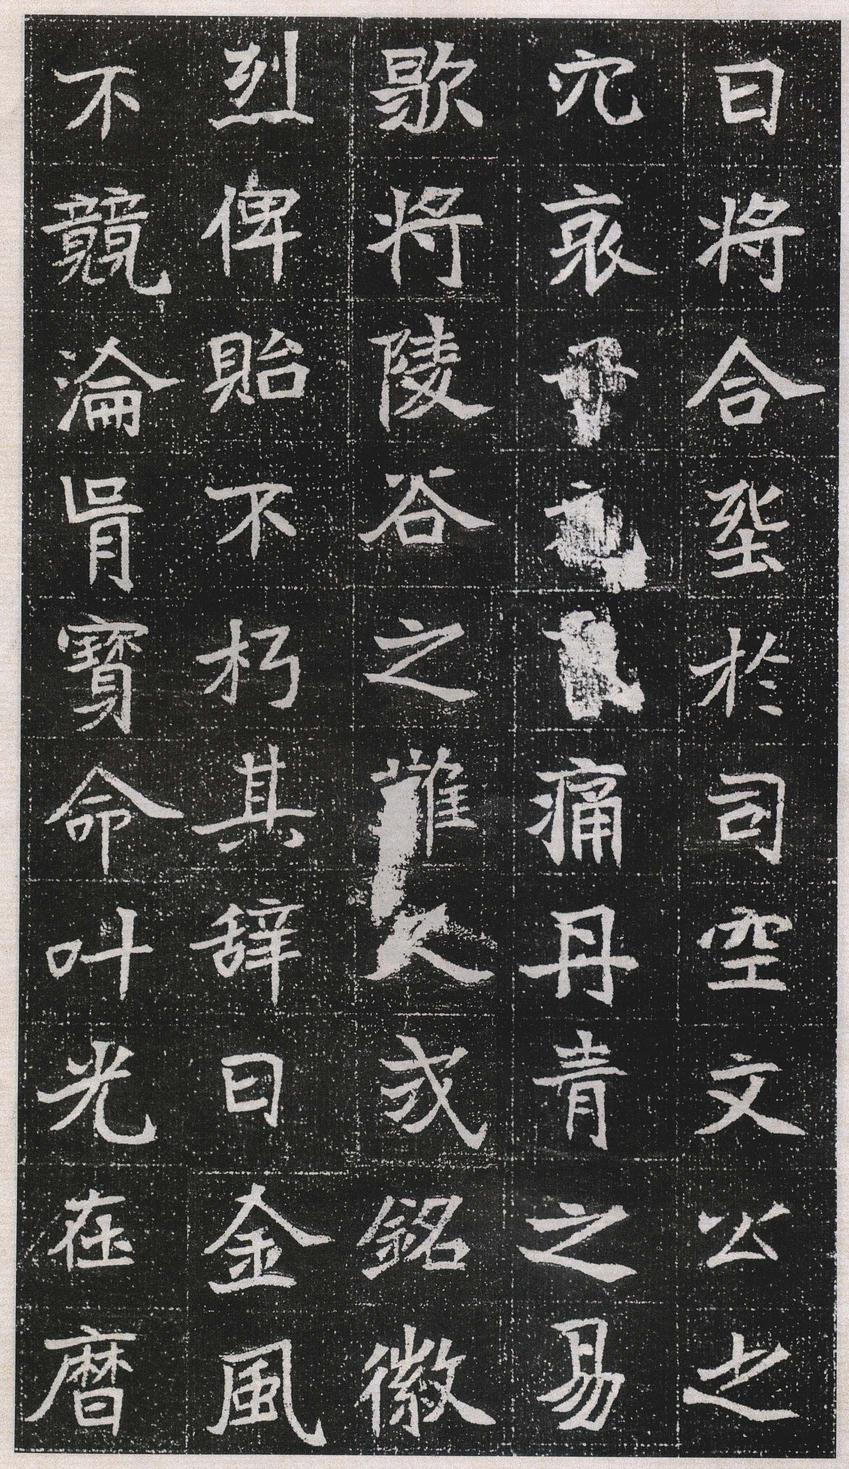 曰將合垗於司空文公之
穴哀痛丹青之易
歇將陵谷之難久式銘徽
烈俾貽不朽其辞曰金風
不競淪胥寶命叶光在曆